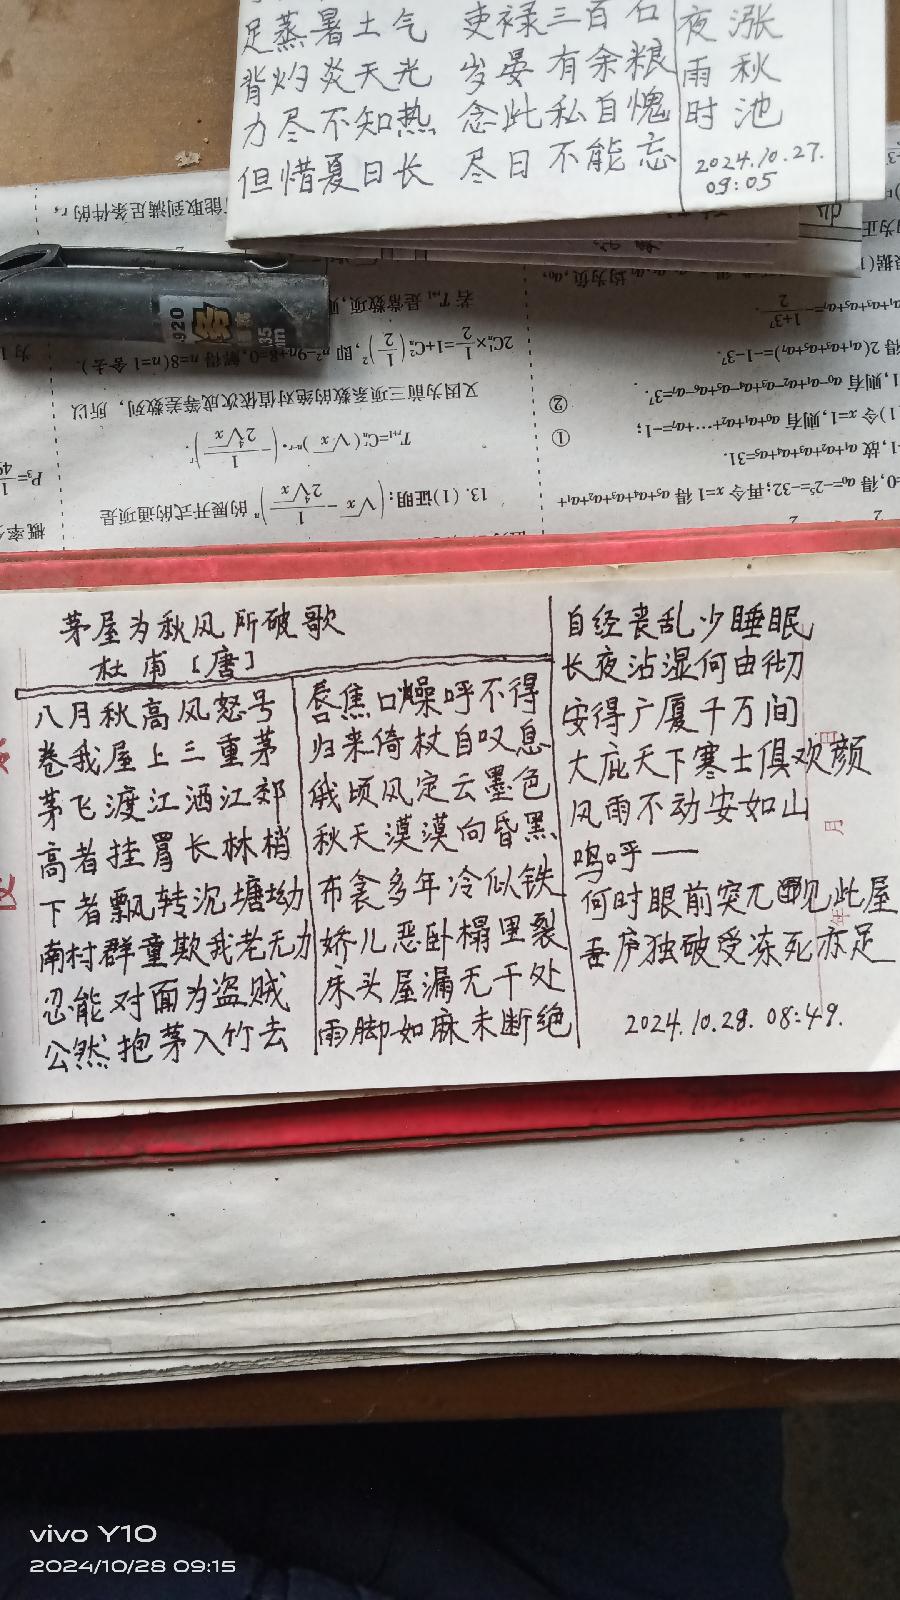 足蒸暑土气
背灼炎天光
力尽不知热
但惜夏日长
吏禄三百石
岁晏有余粮
念此私自愧
尽日不能忘
夜雨时
涨秋池
2024.10.27.
09:05
能取到满足条件的r,
若Tr+1是常数项,则
2C¹ₙ×1/2=1+C²ₙ(1/2)²,即n²-9n+8=0,解得n=8(n=1舍去).
又因为前三项系数的绝对值依次成等差数列,所以
Tr+1=Cʳₙ(√x)ⁿ⁻ʳ·(-1/2∜x)ʳ.
13.(1)证明:(√x-1/2∜x)ⁿ的展开式的通项是
②
①
茅屋为秋风所破歌
杜甫[唐]
八月秋高风怒号
卷我屋上三重茅
茅飞渡江洒江郊
高者挂罥长林梢
下者飘转沉塘坳
南村群童欺我老无力
忍能对面为盗贼
公然抱茅入竹去
唇焦口燥呼不得
归来倚杖自叹息
俄顷风定云墨色
秋天漠漠向昏黑
布衾多年冷似铁
娇儿恶卧榻里裂
床头屋漏无干处
雨脚如麻未断绝
自经丧乱少睡眠
长夜沾湿何由彻
安得广厦千万间
大庇天下寒士俱欢颜
风雨不动安如山
呜呼——
何时眼前突兀见此屋
吾庐独破受冻死亦足
2024.10.28. 08:49.
日
月
年
vivo Y10
2024/10/28 09:15